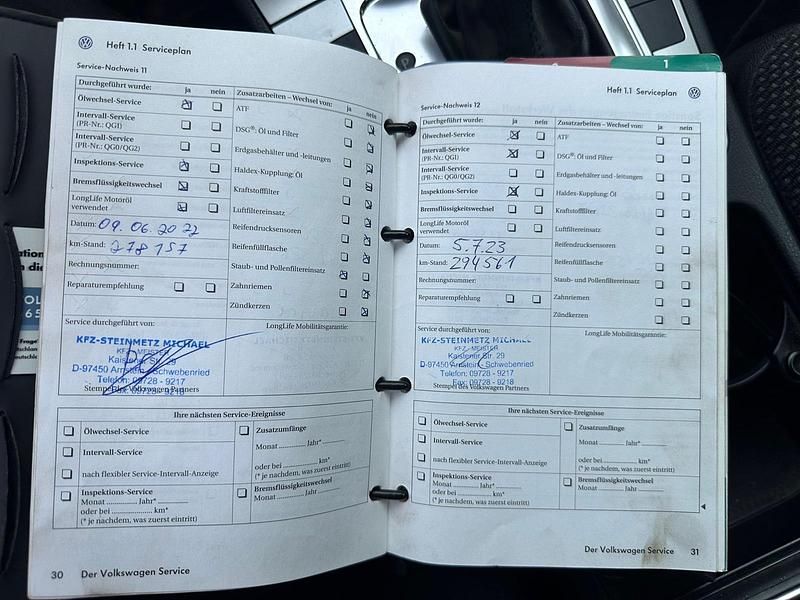 Heft 1.1 Serviceplan
Service-Nachweis 11
Durchgeführt wurde: ja nein
Ölwechsel-Service
Intervall-Service
(PR-Nr.: QG1)
Intervall-Service
(PR-Nr.: QG0/QG2)
Inspektions-Service
Bremsflüssigkeitswechsel
LongLife Motoröl
verwendet
Datum: 09.06.2022
km-Stand: 278157
Rechnungsnummer:
Reparaturempfehlung
Zusatzarbeiten – Wechsel von: ja nein
ATF
DSG®: Öl und Filter
Erdgasbehälter und -leitungen
Haldex-Kupplung: Öl
Kraftstofffilter
Luftfiltereinsatz
Reifendrucksensoren
Reifenfüllflasche
Staub- und Pollenfiltereinsatz
Zahnriemen
Zündkerzen
Service durchgeführt von:
LongLife Mobilitätsgarantie:
KFZ-STEINMETZ MICHAEL
KFZ-MEISTER
Kaistener Str. 29
D-97450 Arnstein - Schwebenried
Telefon: 09728 - 9217
Fax: 09728 - 9218
Stempel des Volkswagen Partners
Ihre nächsten Service-Ereignisse
Ölwechsel-Service
Intervall-Service
nach flexibler Service-Intervall-Anzeige
Inspektions-Service
Monat ............. Jahr* .............
oder bei ............. km*
(* je nachdem, was zuerst eintritt)
Zusatzumfänge
Monat ............. Jahr* .............
oder bei ............. km*
(* je nachdem, was zuerst eintritt)
Bremsflüssigkeitswechsel
Monat ............. Jahr .............
30 Der Volkswagen Service
1
Heft 1.1 Serviceplan
Service-Nachweis 12
Durchgeführt wurde: ja nein
Ölwechsel-Service
Intervall-Service
(PR-Nr.: QG1)
Intervall-Service
(PR-Nr.: QG0/QG2)
Inspektions-Service
Bremsflüssigkeitswechsel
LongLife Motoröl
verwendet
Datum: 5.7.23
km-Stand: 294561
Rechnungsnummer:
Reparaturempfehlung
Zusatzarbeiten – Wechsel von: ja nein
ATF
DSG®: Öl und Filter
Erdgasbehälter und -leitungen
Haldex-Kupplung: Öl
Kraftstofffilter
Luftfiltereinsatz
Reifendrucksensoren
Reifenfüllflasche
Staub- und Pollenfiltereinsatz
Zahnriemen
Zündkerzen
Service durchgeführt von:
LongLife Mobilitätsgarantie:
KFZ-STEINMETZ MICHAEL
KFZ-MEISTER
Kaistener Str. 29
D-97450 Arnstein - Schwebenried
Telefon: 09728 - 9217
Fax: 09728 - 9218
Stempel des Volkswagen Partners
Ihre nächsten Service-Ereignisse
Ölwechsel-Service
Intervall-Service
nach flexibler Service-Intervall-Anzeige
Inspektions-Service
Monat ............. Jahr* .............
oder bei ............. km*
(* je nachdem, was zuerst eintritt)
Zusatzumfänge
Monat ............. Jahr* .............
oder bei ............. km*
(* je nachdem, was zuerst eintritt)
Bremsflüssigkeitswechsel
Monat ............. Jahr .............
Der Volkswagen Service 31